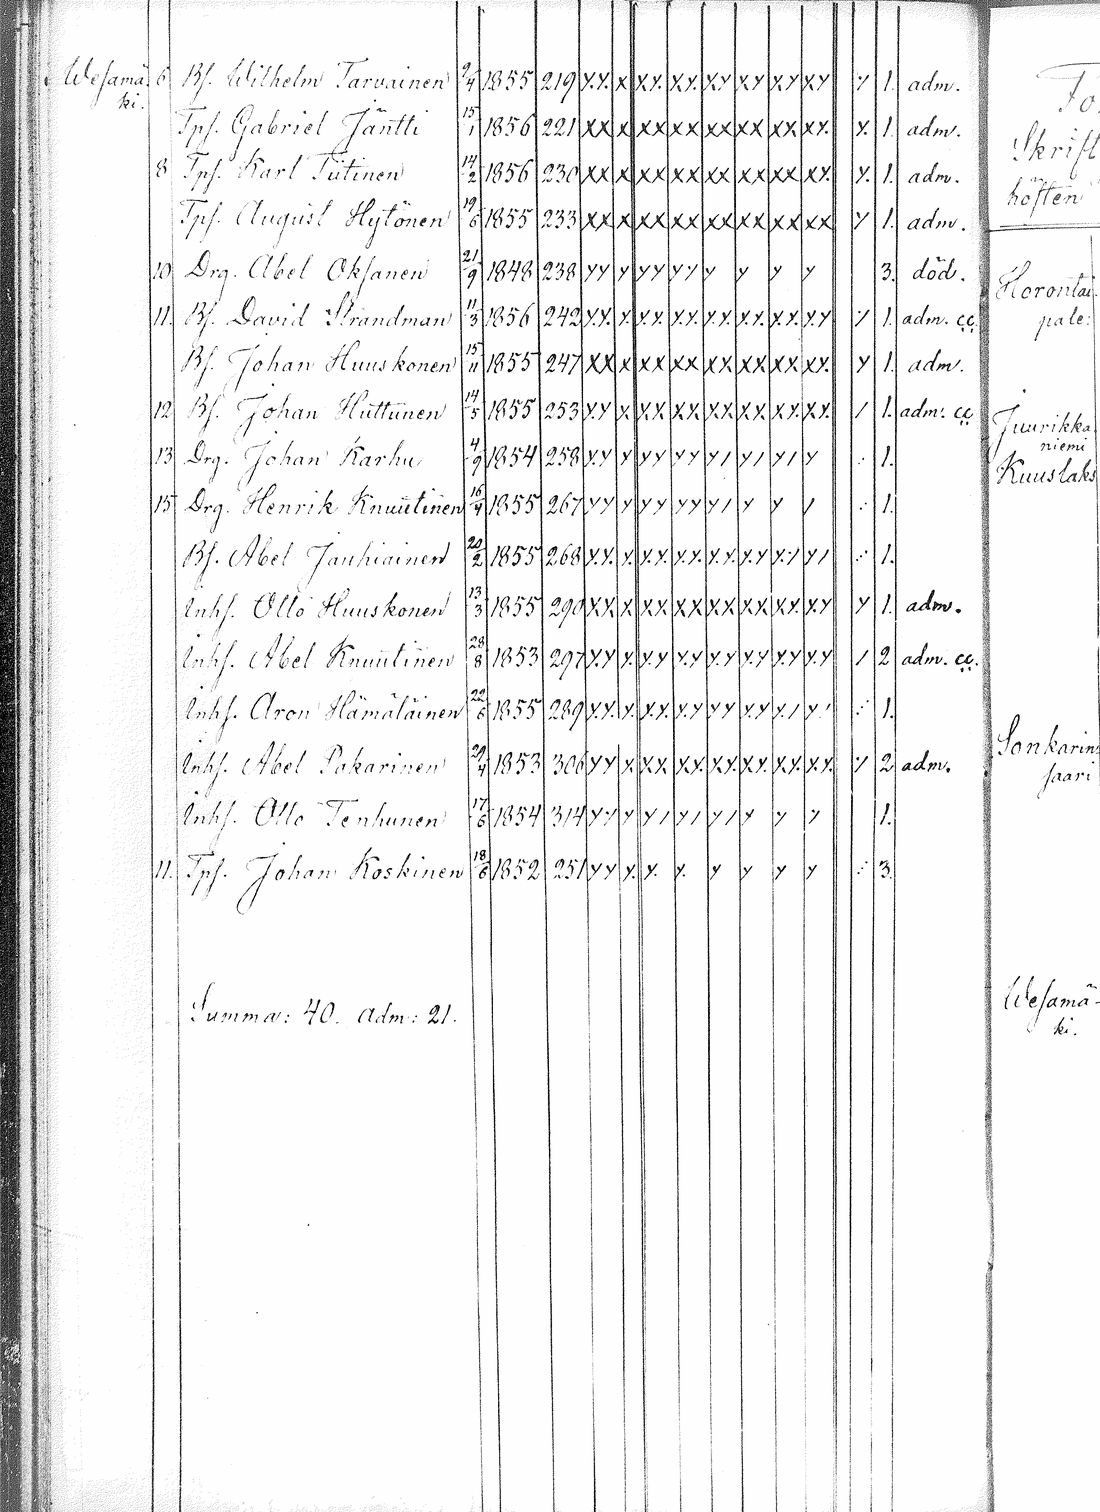 Wesamä- 6 Bs. Wilhelm Tarvainen 9/4 1855 219 y.y. x xy. xy. xy xy xy xy y 1. adm.
ki.
Tps. Gabriel Jäntti 15/1 1856 221 xx x xx xx xx xx xx xy. y. 1. adm.
8 Tps. Karl Tiitinen 14/2 1856 230 xx x xx xx xx xx xx xy. y. 1. adm.
Tps. August Hytönen 19/6 1855 233 xx x xx xx xx xx xx xx y 1. adm.
10 Drg. Abel Oksanen 21/9 1848 238 yy y yy yy y y y y 3. död.
11. Bs. David Strandman 11/3 1856 242 y.y. x y.y. y.y. y.y. y.y. y.y. y.y y 1. adm. cc.
Bs. Johan Huuskonen 15/11 1855 247 xx x xx xx xx xx xx xy. y 1. adm.
12 Bs. Johan Huttunen 14/5 1855 253 y.y x xx xx xx xx xy. xy. / 1. adm. cc
13 Drg. Johan Karhu 4/9 1854 258 y.y x yy yy y/ y/ y/ y 1.
15 Drg. Henrik Knuutinen 16/4 1855 267 yy y yy yy y/ y y / 1.
Bs. Abel Jauhiainen 20/2 1855 268 y.y. y. y.y. y.y. y.y. y.y y./ y/ 1.
Inhs. Otto Huuskonen 13/3 1855 290 xx x xx xx xx xx xy. xy y 1. adm.
Inhs. Abel Knuutinen 28/8 1853 297 y.y y. y.y y.y y.y y.y y.y y.y / 2 adm. cc.
Inhs. Aron Hämäläinen 22/6 1855 289 y.y. y. y.y. y.y yy y.y y./ y/ 1.
Inhs. Abel Pakarinen 29/4 1853 306 yy x xx xy. xy. xy. xy. xy. y 2 adm.
Inhs. Otto Tenhunen 17/6 1854 314 y/ y y/ y/ y/ y y y 1.
11. Tps. Johan Koskinen 18/6 1852 251 yy y. y. y. y y y y 3.
Summa: 40. Adm: 21.
Skrift
höften
Horontai-
pale:
Juurikka
niemi
Kuuslaks
Sonkarin-
saari
Wesamä-
ki.